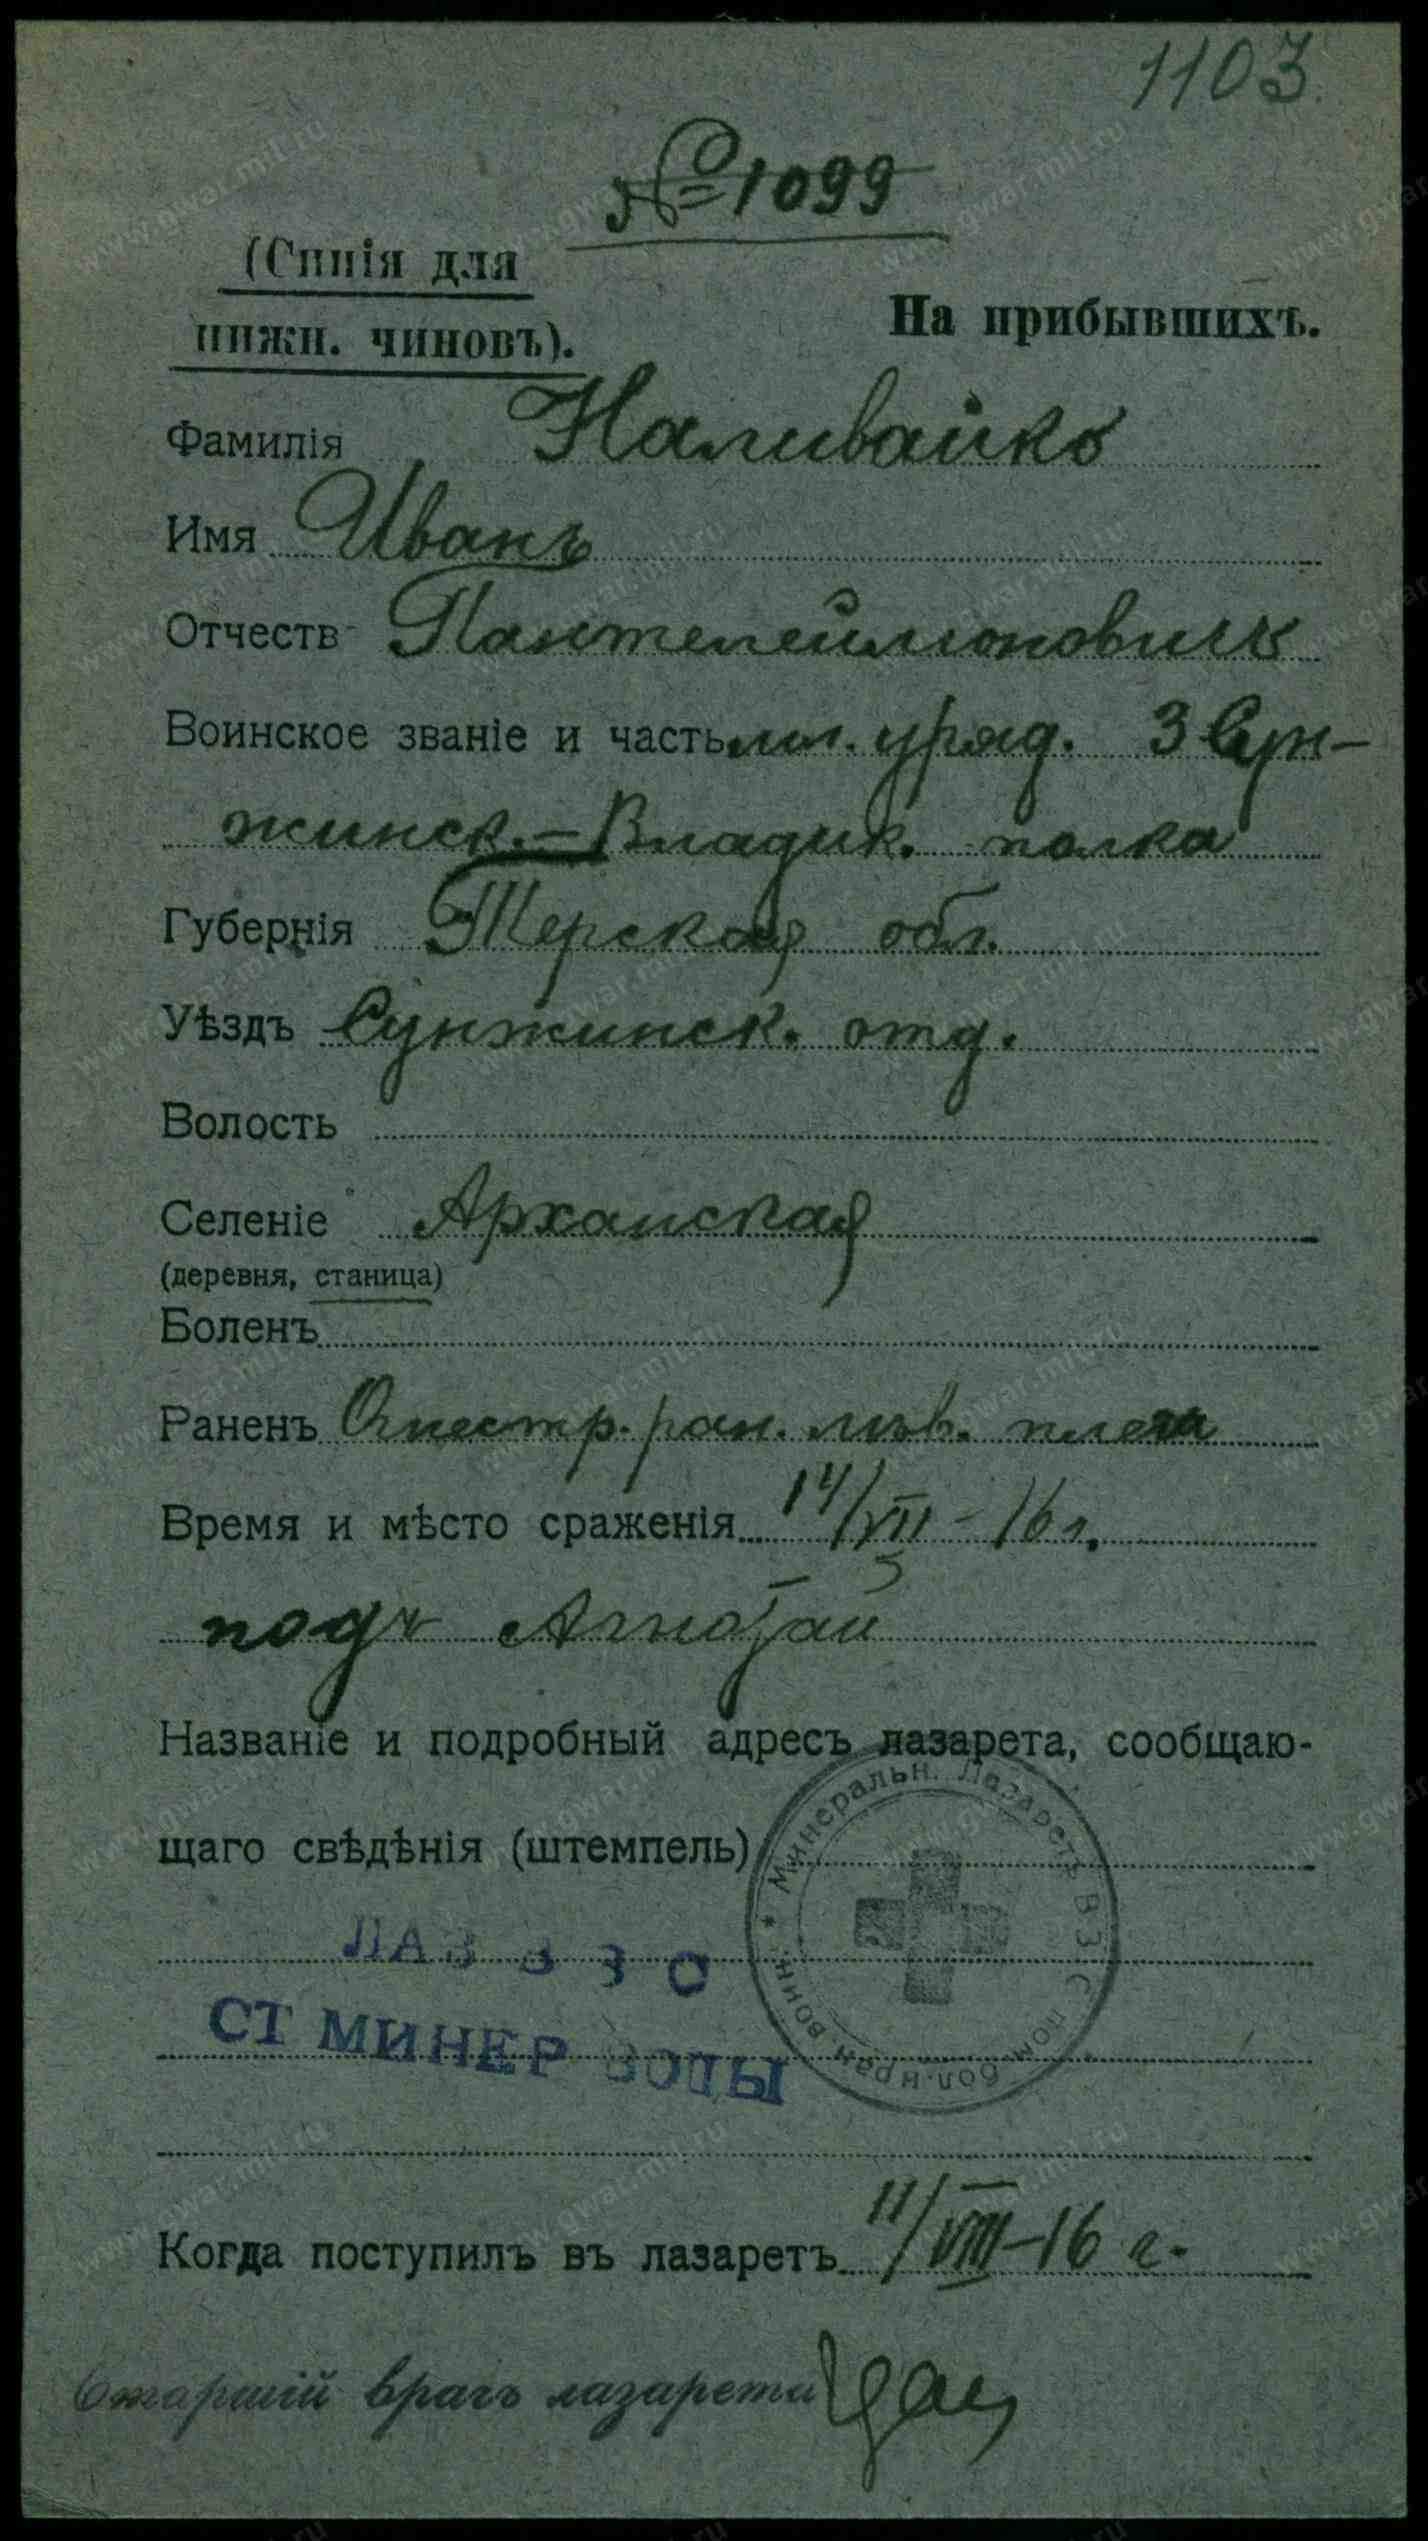 1103.
№ 1099
(Синія для
нижн. чиновъ).
На прибывшихъ.
Фамилія Наливайко
Имя Иванъ
Отчеств Пантелеймоновичъ
Воинское званіе и часть мл. уряд. 3 Сун-
жинск.-Владик. полка
Губернія Терской обл.
Уѣздъ Сунжинск. отд.
Волость
Селеніе Арханская
(деревня, станица)
Боленъ
Раненъ Огнестр. ран. лѣв. плеча
Время и мѣсто сраженія 14/VII - 16 г.
подъ
Названіе и подробный адресъ лазарета, сообщаю-
щаго свѣдѣнія (штемпель)
Минеральн. Лазаретъ В З С пом. бол. и ран. воин.
ЛАЗ В З С
СТ МИНЕР ВОДЫ
Когда поступилъ въ лазаретъ 11/VIII-16 г.
Старшій врачъ лазарета